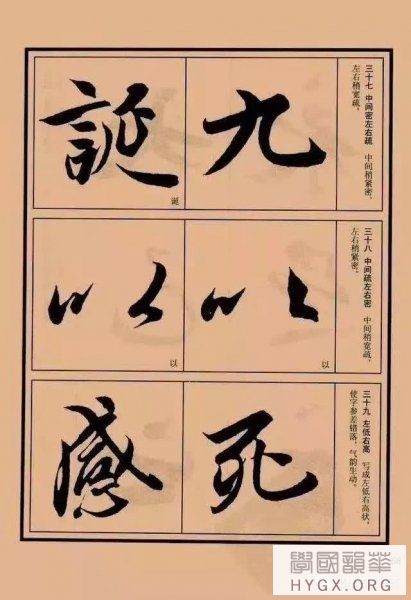 三十七 中间密左右疏 中间稍紧密，
左右稍宽疏。
九
誕
诞
三十八 中间疏左右密 中间稍宽疏，
左右稍紧密。
以
以
以
以
三十九 左低右高 写成左低右高状，
使字参差错落，气韵生动。
死
感
學國韻華
HYGX.ORG